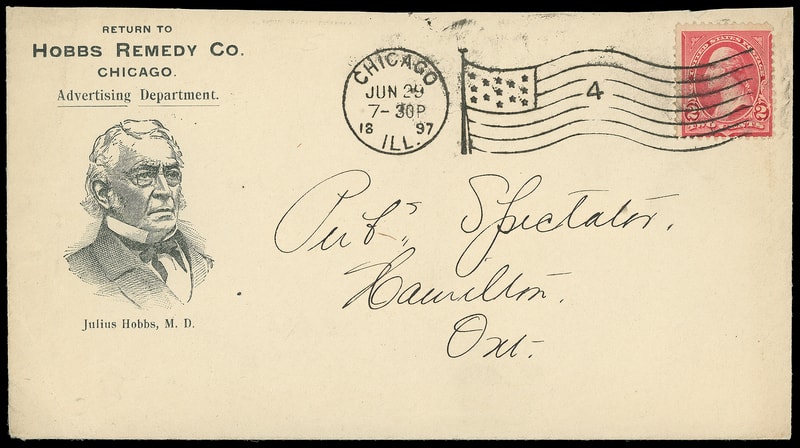 RETURN TO
HOBBS REMEDY CO.
CHICAGO.
Advertising Department.
Julius Hobbs, M. D.
CHICAGO
JUN 29
7-30P
18 97
ILL.
4
UNITED STATES
2 TWO CENTS 2
Pubs Spectator.
Hamilton.
Ont.